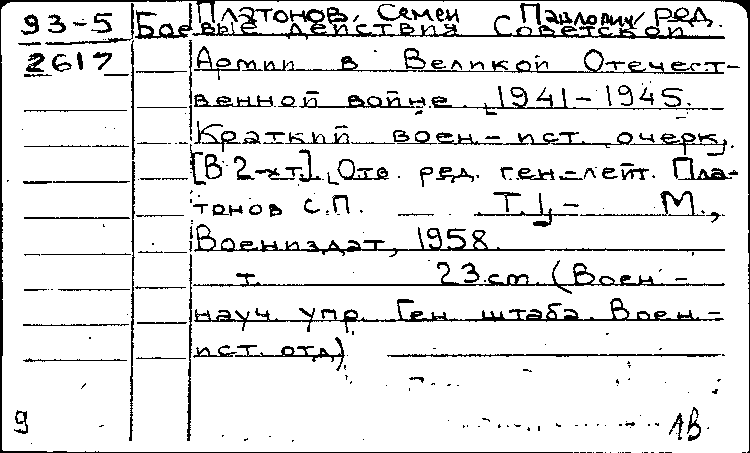 Платонов, Семен Павлович, ред.
93-5 Боевые действия Советской
2617 Армии в Великой Отечест-
венной войне. 1941-1945.
Краткий воен.-ист. очерк.
[В 2-х т.] Отв. ред. ген.-лейт. Пла-
тонов С.П. Т. 1,- М.,
Воениздат, 1958.
т. 23 cm. (Воен.-
науч. упр. Ген. штаба. Воен.-
ист. отд)
9 ЛВ